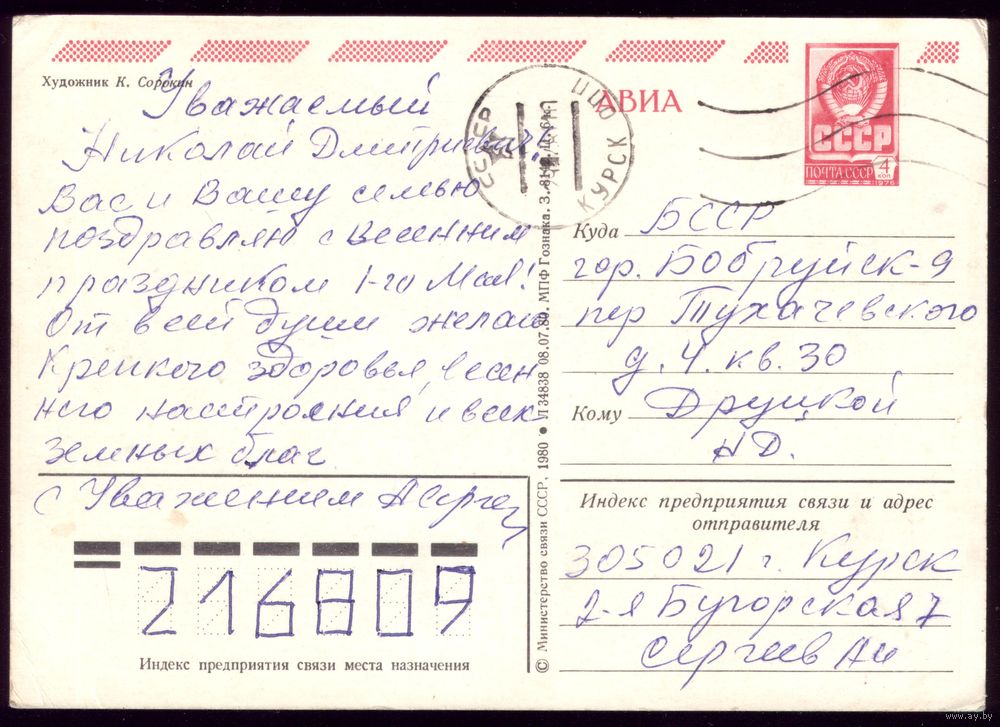 Художник К. Сорокин
АВИА
СССР
КУРСК
СССР
ПОЧТА СССР
4
КОП
1976
Уважаемый
Николай Дмитриевич!
Вас и Вашу семью
поздравляю с весенним
праздником 1-го Мая!
От всей души желаю
Крепкого здоровья, весен
него настроения и всех
земных благ
с Уважением А Сергеев
216809
Индекс предприятия связи места назначения
© Министерство связи СССР, 1980 • Л 34838 08.07.80. МПФ Гознака. З.
Куда БССР
гор. Бобруйск-9
пер Тухачевского
д. 4. кв. 30
Кому Друцкой
Н Д.
Индекс предприятия связи и адрес
отправителя
305021 г. Курск
2-я Бугорская 7
Сергеев А И
www.ay.by